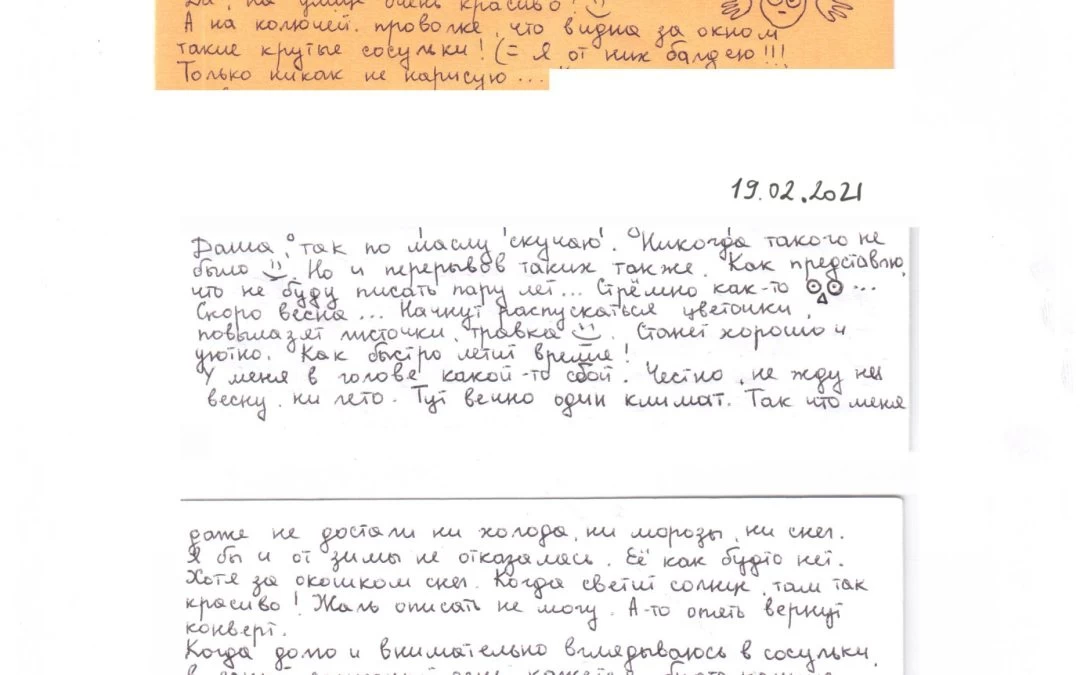 Да, на улице очень красиво!
А на колючей проволке, что видна за окном
такие крутые сосульки! (= Я от них балдею!!!
Только никак не нарисую...
19.02.2021
Даша, так по маслу 'скучаю'. Никогда такого не
было Но и перерывов таких также. Как представлю,
что не буду писать пару лет... Стрёмно как-то ...
Скоро весна... Начнут распускаться цветочки,
повылазят листочки, травка Станет хорошо и
уютно. Как быстро летит время!
У меня в голове какой-то сбой. Честно, не жду ни
весну, ни лето. Тут вечно один климат. Так что меня
даже не достали ни холода, ни морозы, ни снег.
Я бы и от зимы не отказалась. Её как будто нет.
Хотя за окошком снег. Когда светит солнце, там так
красиво! Жаль описать не могу. А-то опять вернут
конверт.
Когда долго и внимательно вглядываюсь в сосульки,